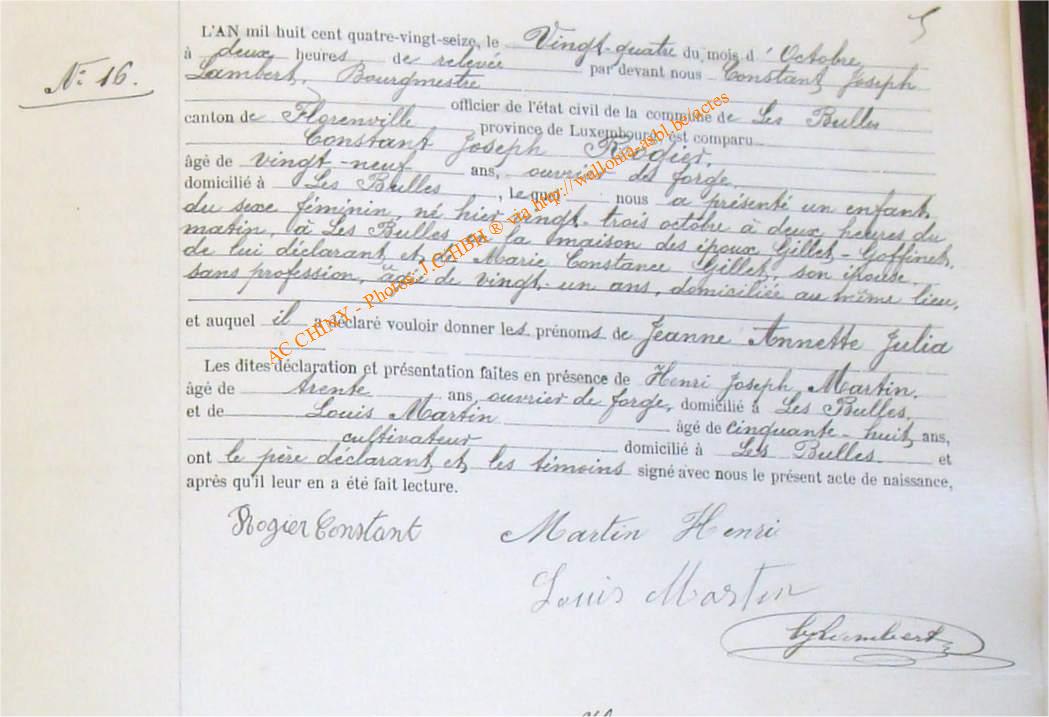 5
N° 16.
L'AN mil huit cent quatre-vingt-seize, le Vingt-quatre du mois d'Octobre,
à deux heures de relevée par devant nous Constant Joseph
Lambert, Bourgmestre
officier de l'état civil de la commune de Les Bulles
canton de Florenville province de Luxembourg est comparu
Constant Joseph Rogier,
âgé de vingt-neuf ans, ouvrier de forge
domicilié à Les Bulles, Lequel nous a présenté un enfant
du sexe féminin, né hier vingt-trois octobre à deux heures du
matin, à Les Bulles en la maison des époux Gillet-Goffinet,
de lui déclarant et de Marie Constance Gillet, son épouse,
sans profession, âgée de vingt-un ans, domiciliée au même lieu,
et auquel il a déclaré vouloir donner les prénoms de Jeanne Annette Julia
Les dites déclaration et présentation faites en présence de Henri Joseph Martin,
âgé de trente ans, ouvrier de forge, domicilié à Les Bulles,
et de Louis Martin âgé de cinquante-huit ans,
cultivateur domicilié à Les Bulles et
ont le père déclarant et les témoins signé avec nous le présent acte de naissance,
après qu'il leur en a été fait lecture.
Rogier Constant Martin Henri
Louis Martin
CJLambert
AC CHINY - Photos: J.C HBH ® via http://wallonia-asbl.be/actes